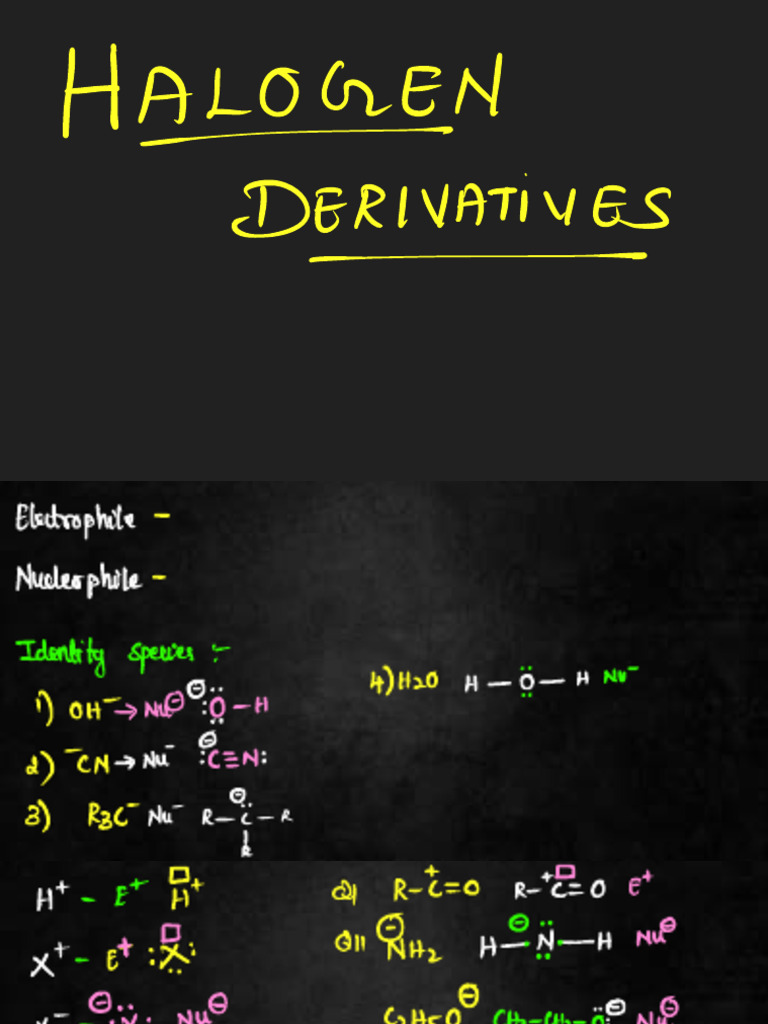 HALOGEN
DERIVATIVES
Electrophile -
Nucleophile -
Identity species :-
1) OH⁻ → Nu⊖ ⊖:Ö-H
2) ⁻CN → Nu⁻ ⊖:C≡N:
3) R3C⁻ Nu⁻ R-C-R
R
4) H2O H-Ö-H Nu⁻
H⁺ - E⁺ H⁺
X⁺ - E⁺ :X:
X⁻ Nu⊖
R-C⁺=O R-C⁺=O E⁺
⊖NH2 H-N-H Nu⊖
C2H5O⊖ CH3-CH2-O⊖ Nu⊖